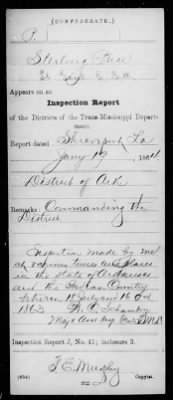 (CONFEDERATE.)
P.
Sterling Price
Appears on an
Inspection Report
of the Districts of the Trans-Mississippi Depart-
ment.
Report dated Shreveport La
Jany 19, 1864
District of Ark
Remarks: Commanding the
District
Inspection made by me
at various times and places
in the State of Arkansas
and the Indian Country
between 18 July and 16 Oct
1863
Inspection Report J, No. 41; inclosure 2.
T. E. Murphy
(654)
Copyist.